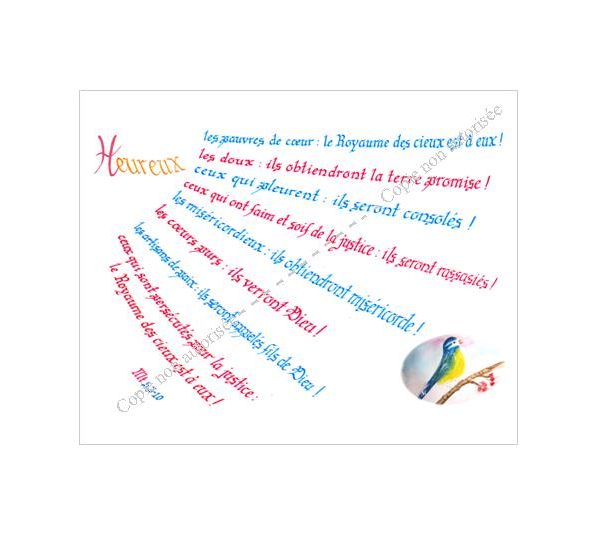 Heureux
les pauvres de cœur : le Royaume des cieux est à eux !
les doux : ils obtiendront la terre promise !
ceux qui pleurent : ils seront consolés !
ceux qui ont faim et soif de la justice : ils seront rassasiés !
les miséricordieux : ils obtiendront miséricorde !
les cœurs purs : ils verront Dieu !
les artisans de paix : ils seront appelés fils de Dieu !
ceux qui sont persécutés pour la justice :
le Royaume des cieux est à eux !
Mt 5,3-10
Copie non autorisée - - - - - - - - - - Copie non autorisée